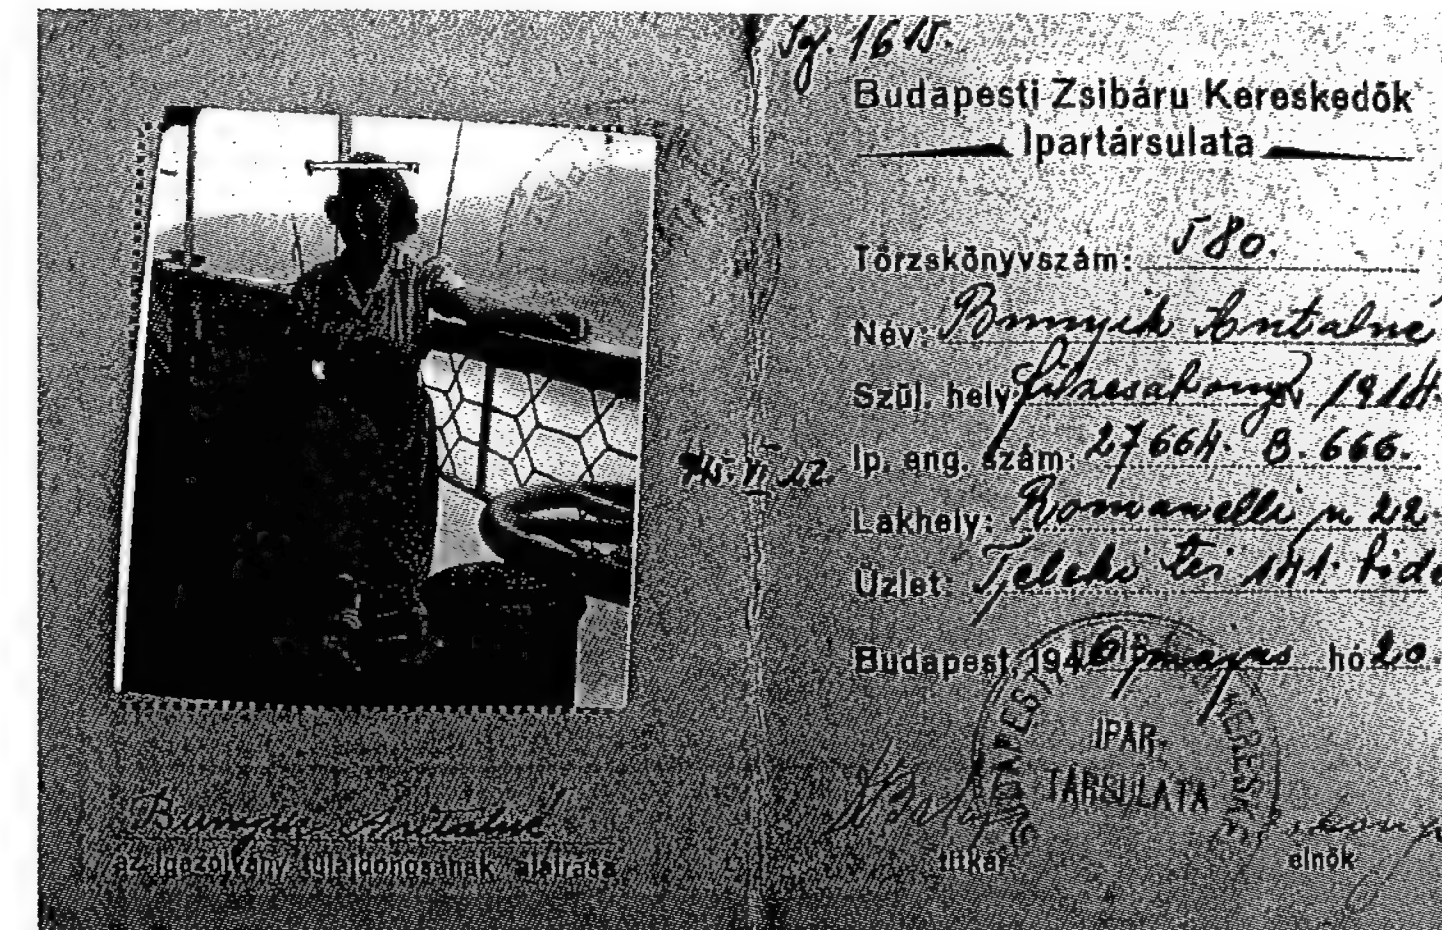 Sg. 1615.
Budapesti Zsibáru Kereskedők
Ipartársulata
Törzskönyvszám: 580.
Név: Bunyik Antalné
Szül. hely év 1914.
Ip. eng. szám: 27664. B. 666.
Lakhely: Romanelli u 22.
Üzlet: Teleki tér 141.
Budapest, 1946 május hó 20.
BUDAPESTI
IPAR-
TÁRSULATA
titkár
elnök
Bunyik Antalné
az igazolvány tulajdonosának aláírása